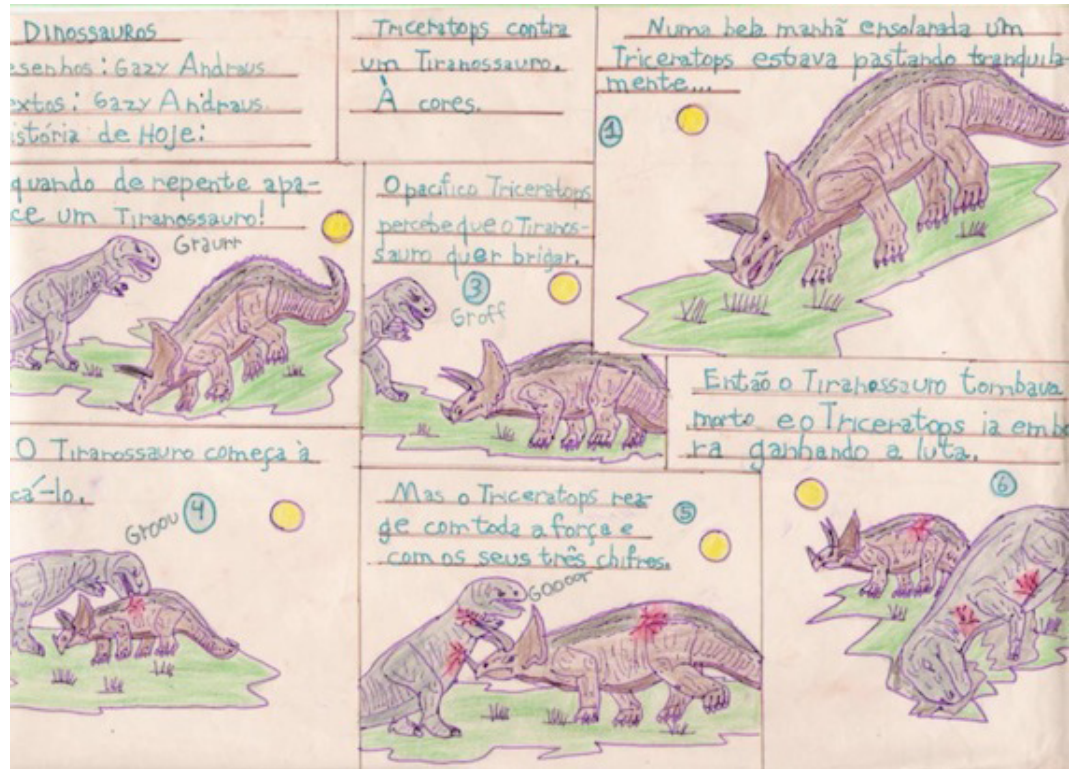 DINOSSAUROS
esenhos: Gazy Andraus
extos: Gazy Andraus.
istória de Hoje:
Triceratops contra
um Tiranossauro.
À cores.
Numa bela manhã ensolarada um
Triceratops estava pastando tranquila-
mente...
1
quando de repente apa-
ce um Tiranossauro!
Graurr
O pacífico Triceratops
percebe que o Tiranos-
sauro quer brigar.
3
Groff
O Tiranossauro começa à
cá-lo.
4
Groou
Mas o Triceratops rea-
ge com toda a força e
com os seus três chifres.
5
Goooor
Então o Tiranossauro tombava
morto e o Triceratops ia embo
ra ganhando a luta.
6